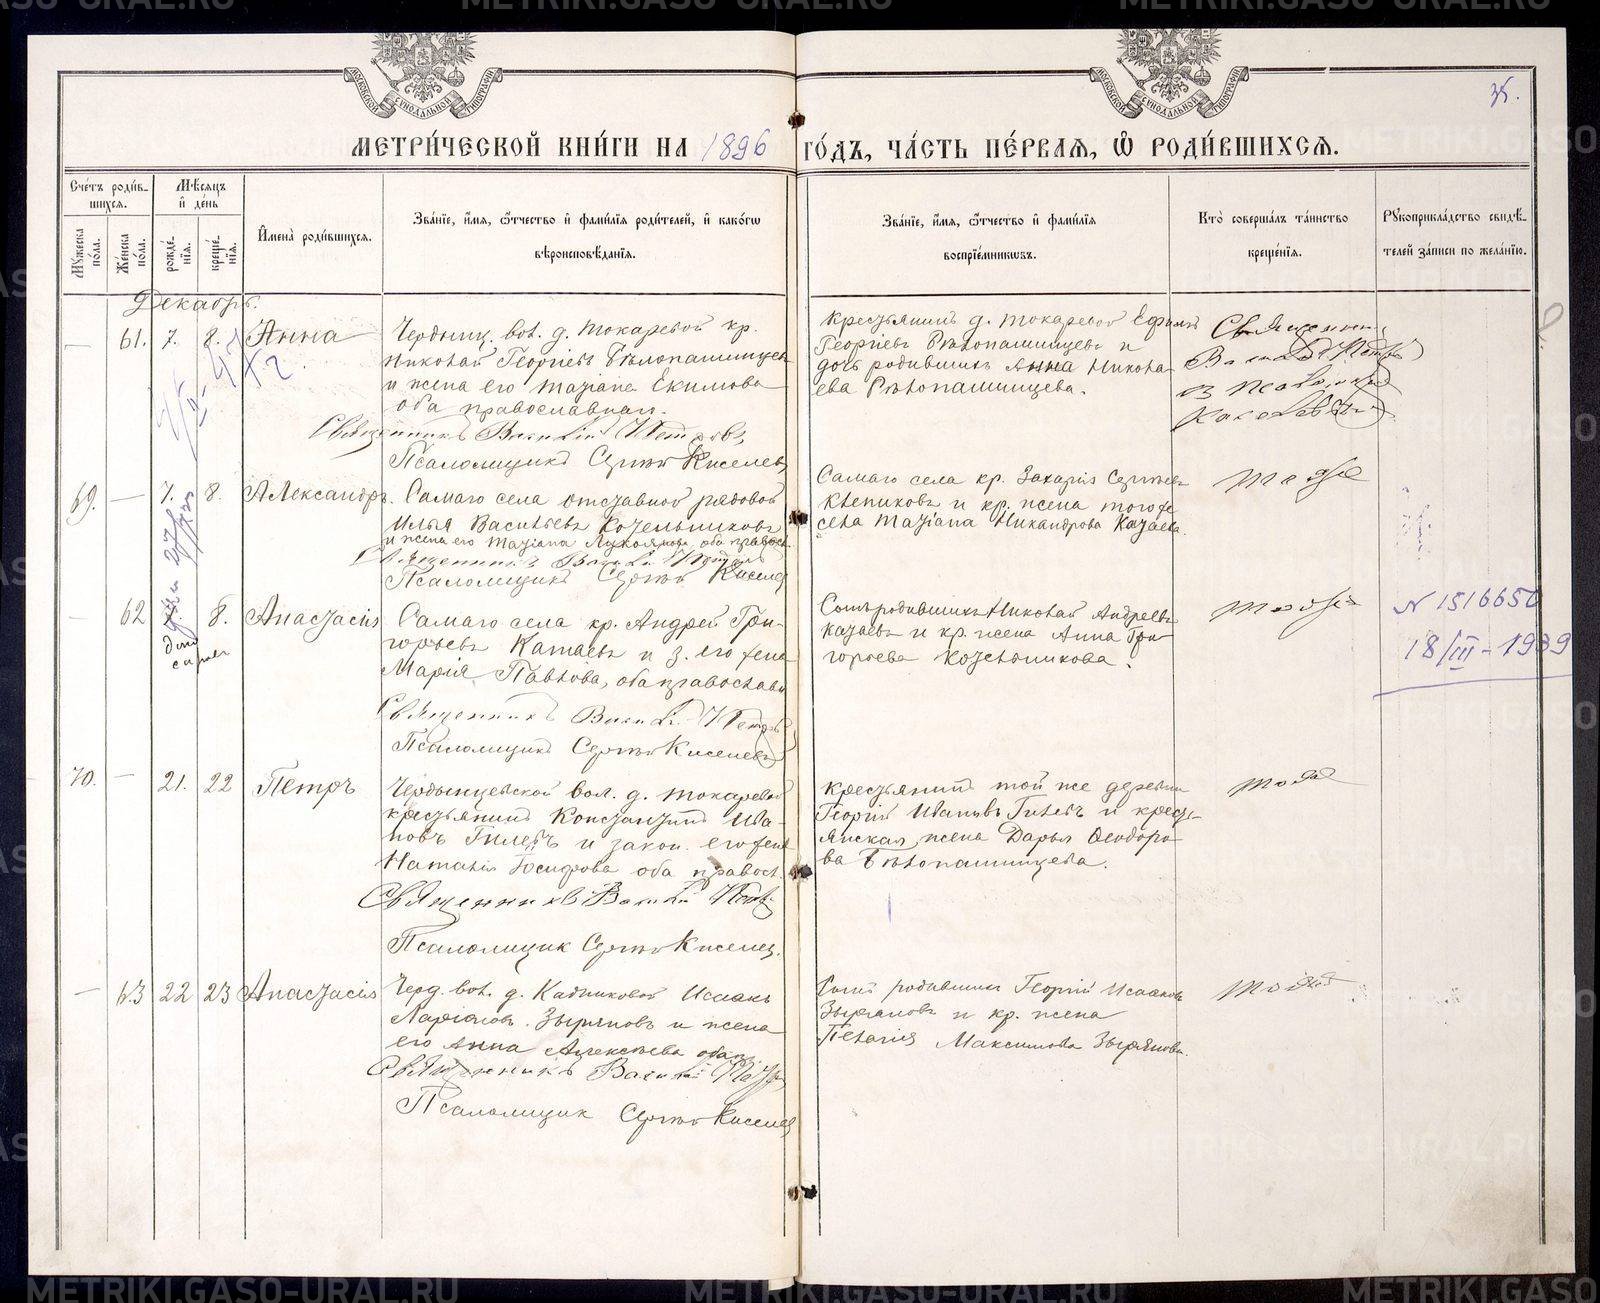 METRIKI.GASO-URAL.RU
МОСКОВСКОЙ СѴНОДАЛЬНОЙ ТИПОГРАФІИ
МОСКОВСКОЙ СѴНОДАЛЬНОЙ ТИПОГРАФІИ
МЕТРИЧЕСКОЙ КНИГИ НА 1896 ГОДЪ, ЧАСТЬ ПЕРВАЯ, Ѡ РОДИВШИХСЯ.
Счетъ родив-
шихся.
Мѣсяцъ
и день
Мужеска
пола.
Женска
пола.
рожде-
нія.
креще-
нія.
Имена родившихся.
Званіе, имя, ѿчество и фамилія родителей, и какогѡ
вѣроисповѣданія.
Званіе, имя, ѿчество и фамилія
воспріемникѡвъ.
Кто совершалъ таинство
крещенія.
Рукоприкладство свидѣ-
телей записи по желанію.
Декабрь.
— 61. 7. 8. Анна
Чердынц. вол. д. Токаревой кр.
Николай Георгіевъ Бѣлопашинцевъ
и жена его Татіана Екимова
оба православнаи.
Священникъ Василій Петровъ
Псаломщикъ Сергѣй Киселевъ
Крестьянинъ д. Токаревой Ефимъ
Георгіевъ Бѣлопашинцевъ и
дочь родившихъ Анна Никола-
ева Бѣлопашинцева.
Священникъ
Василій Петровъ
съ псаломщикомъ
69. — 7. 8. Александръ.
Самаго села отставной рядовой
Илья Васильевъ Котельниковъ
и жена его Татіана оба правосл.
Священникъ Василій Петровъ
Псаломщикъ Сергѣй Киселевъ
Самаго села кр. Захарій Сергѣевъ
Клепиковъ и кр. жена того же
села Татіана Никандрова Катаева.
Тоже
— 62 8. Анастасія
Самаго села кр. Андрей Гри-
горьевъ Катаевъ и з. его жена
Марія Павлова, оба православн
Священникъ Василій Петровъ
Псаломщикъ Сергѣй Киселевъ
Сынъ родившихъ Николай Андреевъ
Катаевъ и кр. жена Анна Гри-
горьева Котельникова.
Тоже
N 1516650
18/III-1939
70. — 21. 22 Петръ
Чердынцевской вол. д. Токаревой
крестьянинъ Константинъ Ива-
новъ Гилевъ и закон. его жена
Наталія Іосифова оба правосл.
Священникъ Василій Петровъ
Псаломщик Сергѣй Киселев.
Крестьянинъ той же деревни
Георгій Ивановъ Гилевъ и кресть-
янская жена Дарья Ѳеодоро-
ва Бѣлопашинцева.
Тоже
— 63 22 23 Анастасія
Черд. вол. д. Кадниковой Исаакъ
Зыряновъ и жена
его Анна Алексѣева оба
Священникъ Василій Петровъ
Псаломщик Сергѣй Киселев
Сынъ родившихъ Георгій Исааковъ
Зыряновъ и кр. жена
Пелагія Максимова Зырянова.
Тоже
METRIKI.GASO-URAL.RU